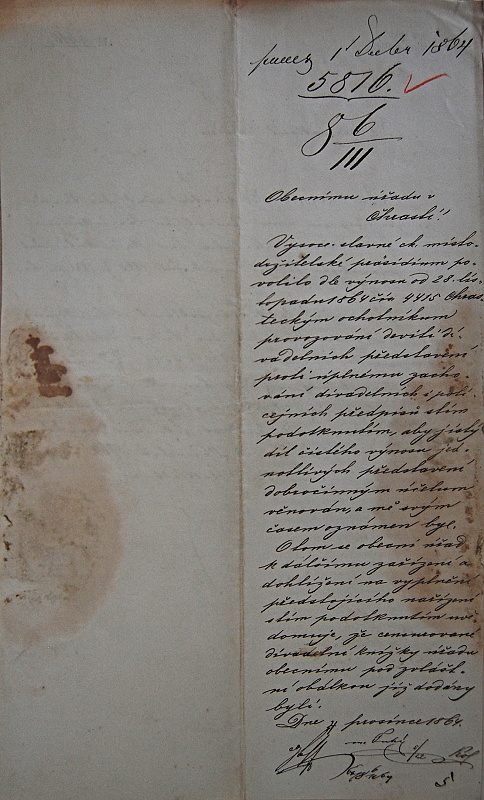 1864
5816.
8 6
III
Obecnímu úřadu v
Chrasti!
Vysoce slavné ck. místo-
držitelské präsidium po-
volilo dle výnosu od 28. lis-
topadu 1864 čís 4415 Chras-
teckým ochotníkum
provozování devíti di-
vadelních představení
proti úplnému zacho-
vání divadelních i poli-
cejních předpisů s tím
podotknutím, aby jistý
díl čistého výnosu jed-
notlivých představení
dobročinným účelum
věnován, a mě svým
časem oznámen byl.
O tom se obecní úřad
k dalšímu zařízení a
dohlížení na vyplnění
předstojícího nařízení
s tím podotknutím uvě-
domuje, že censurované
divadelní knížky úřadu
obecnímu pod zvlášt-
ní obálkou již dodány
byli.
Dne prosince 1864.